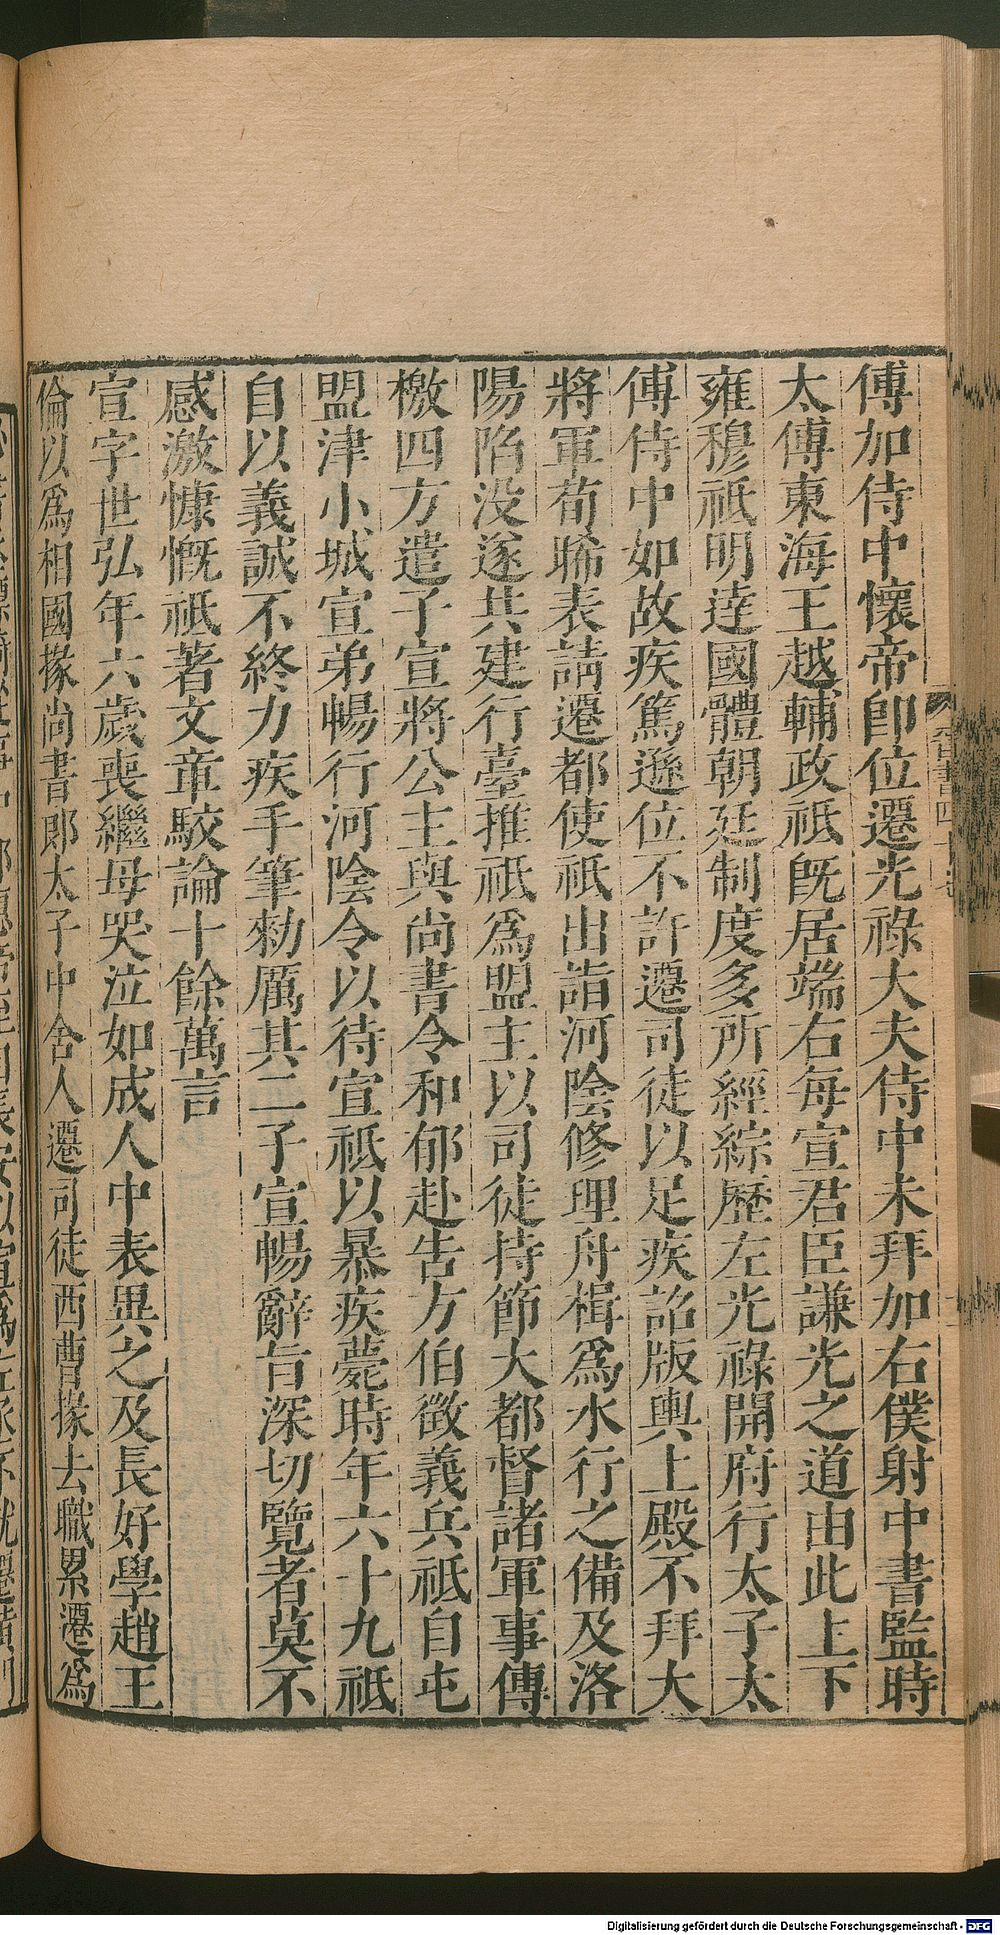 傅加侍中懷帝即位遷光祿大夫侍中未拜加右僕射中書監時
太傅東海王越輔政祗既居端右每宣君臣謙光之道由此上下
雍穆祗明達國體朝廷制度多所經綜歷左光祿開府行太子太
傅侍中如故疾篤遜位不許遷司徒以足疾詔版輿上殿不拜大
將軍荀晞表請遷都使祗出詣河陰修理舟楫爲水行之備及洛
陽陷没遂共建行臺推祗爲盟主以司徒持節大都督諸軍事傳
檄四方遣子宣將公主與尚書令和郁赴告方伯徵義兵祗自屯
盟津小城宣弟暢行河陰令以待宣祗以暴疾薨時年六十九祗
自以義誠不終力疾手筆勑厲其二子宣暢辭旨深切覽者莫不
感激慷慨祗著文章駮論十餘萬言
宣字世弘年六歲喪繼母哭泣如成人中表異之及長好學趙王
倫以爲相國掾尚書郎太子中舍人遷司徒西曹掾去職累遷爲
Digitalisierung gefördert durch die Deutsche Forschungsgemeinschaft - DFG